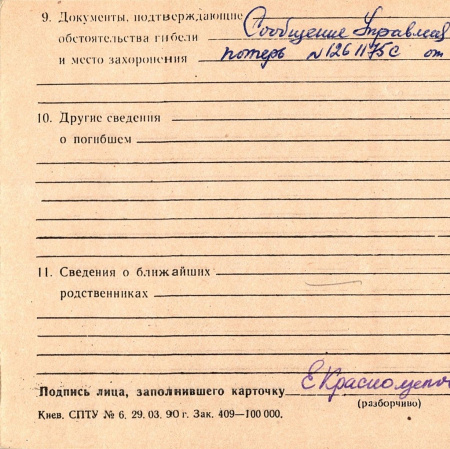 9. Документы, подтверждающие Сообщение Управлен
обстоятельства гибели
и место захоронения потерь №1261175с от
10. Другие сведения
о погибшем
11. Сведения о ближайших
родственниках
Подпись лица, заполнившего карточку Е Краснощепо
(разборчиво)
Киев. СПТУ № 6. 29. 03. 90 г. Зак. 409—100 000.